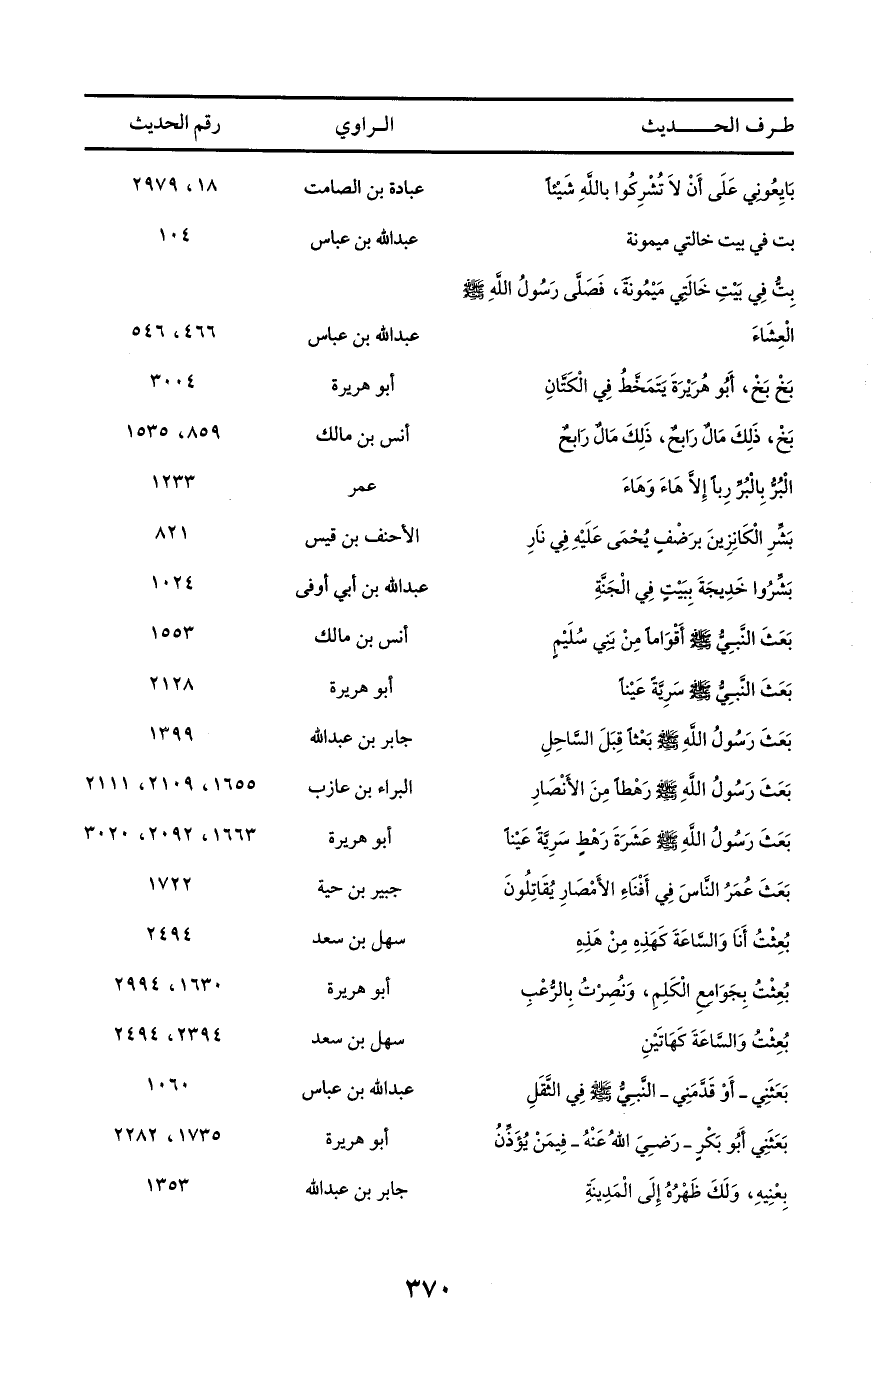 طـرف الحـــــديث الـراوي رقم الحديث
بَايِعُونِي عَلَى أَنْ لاَ تُشْرِكُوا بِاللَّهِ شَيْئاً عبادة بن الصامت ١٨، ٢٩٧٩
بت في بيت خالتي ميمونة عبدالله بن عباس ١٠٤
بِتُّ فِي بَيْتِ خَالَتِي مَيْمُونَةَ، فَصَلَّى رَسُولُ اللَّهِ ﷺ
الْعِشَاءَ عبدالله بن عباس ٤٦٦، ٥٤٦
بَخْ بَخْ، أَبُو هُرَيْرَةَ يَتَمَخَّطُ فِي الْكَتَّانِ أبو هريرة ٣٠٠٤
بَخْ، ذَلِكَ مَالٌ رَابِحٌ، ذَلِكَ مَالٌ رَابِحٌ أنس بن مالك ٨٥٩، ١٥٣٥
الْبُرُّ بِالْبُرِّ رِباً إِلاَّ هَاءَ وَهَاءَ عمر ١٢٣٣
بَشِّرِ الْكَانِزِينَ بِرَضْفٍ يُحْمَى عَلَيْهِ فِي نَارِ الأحنف بن قيس ٨٢١
بَشِّرُوا خَدِيجَةَ بِبَيْتٍ فِي الْجَنَّةِ عبدالله بن أبي أوفى ١٠٢٤
بَعَثَ النَّبِيُّ ﷺ أَقْوَاماً مِنْ بَنِي سُلَيْمٍ أنس بن مالك ١٥٥٣
بَعَثَ النَّبِيُّ ﷺ سَرِيَّةً عَيْناً أبو هريرة ٢١٢٨
بَعَثَ رَسُولُ اللَّهِ ﷺ بَعْثاً قِبَلَ السَّاحِلِ جابر بن عبدالله ١٣٩٩
بَعَثَ رَسُولُ اللَّهِ ﷺ رَهْطاً مِنَ الأَنْصَارِ البراء بن عازب ١٦٥٥، ٢١٠٩، ٢١١١
بَعَثَ رَسُولُ اللَّهِ ﷺ عَشَرَةَ رَهْطٍ سَرِيَّةً عَيْناً أبو هريرة ١٦٦٣، ٢٠٩٢، ٣٠٢٠
بَعَثَ عُمَرُ النَّاسَ فِي أَفْنَاءِ الأَمْصَارِ يُقَاتِلُونَ جبير بن حية ١٧٢٢
بُعِثْتُ أَنَا وَالسَّاعَةَ كَهَذِهِ مِنْ هَذِهِ سهل بن سعد ٢٤٩٤
بُعِثْتُ بِجَوَامِعِ الْكَلِمِ، وَنُصِرْتُ بِالرُّعْبِ أبو هريرة ١٦٣٠، ٢٩٩٤
بُعِثْتُ وَالسَّاعَةَ كَهَاتَيْنِ سهل بن سعد ٢٣٩٤، ٢٤٩٤
بَعَثَنِي ـ أَوْ قَدَّمَنِي ـ النَّبِيُّ ﷺ فِي الثَّقَلِ عبدالله بن عباس ١٠٦٠
بَعَثَنِي أَبُو بَكْرٍ ـ رَضِيَ اللهُ عَنْهُ ـ فِيمَنْ يُؤَذِّنُ أبو هريرة ١٧٣٥، ٢٢٨٢
بِعْنِيهِ، وَلَكَ ظَهْرُهُ إِلَى الْمَدِينَةِ جابر بن عبدالله ١٣٥٣
٣٧٠